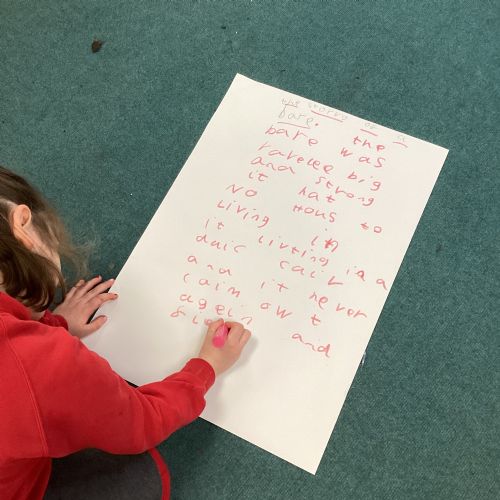 the storre of a
bare. the
bare was
rarelee big
and strong
it hat
No Hous to
Living in
it living in a
daic cair
and it never
caim owt
agein and